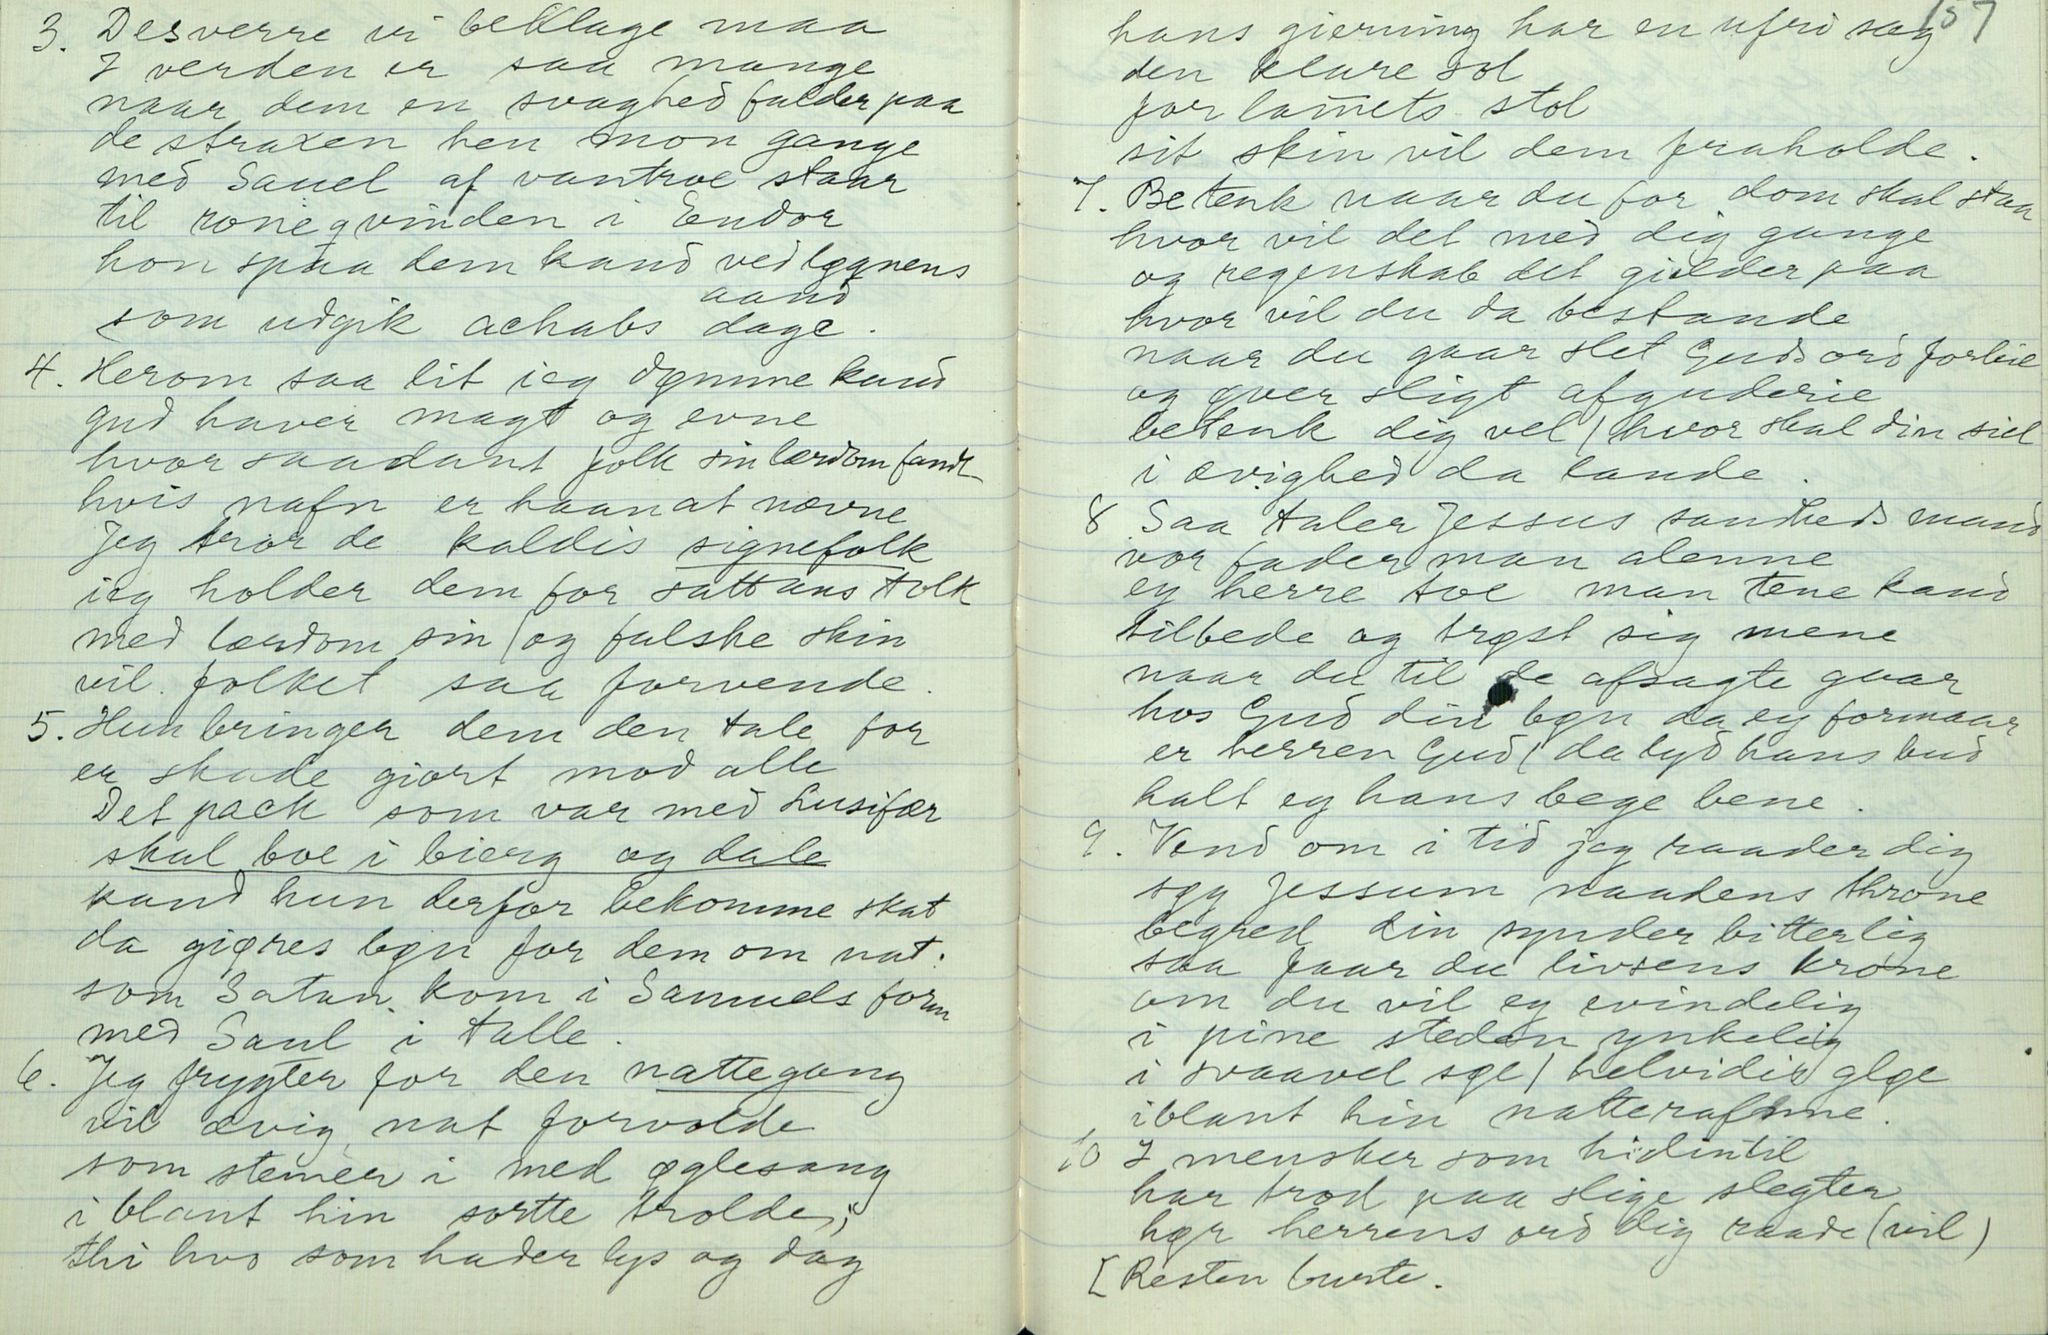 3. Desverre vi beklage maa
I verden er saa mange
naar dem en svaghed falder paa
de straxen hen mon gange
med Sauel af vantroe staar
til ronegvinden i Eendor
hon spaa dem kand ved løgnens
aand
som udgik achabs dage.
4. Herom saa lit ieg dømme kand
gud haver magt og evne
hvor saadant folk sin lærdom fandt
hvis nafn er haan at nævne
Jeg tror de kaldis signefolk
ieg holder dem for sattans tolk
med lærdom sin / og falske skin
vil folket saa forvende.
5. Hun bringer dem den tale for
er skade giort mod alle
Det pack som var med Lusifær
skal boe i bierg og dale
kand hun derfor bekomme skat
da giøres bøn for dem om nat.
som Satan kom i Samuels form
med Saul i talle.
6. Jeg frygter for den nattegang
vil ævig nat forvolde
som stemer i med øglesang
iblant hin sortte trolde;
thi hvo som hader lys og dag
157
hans gierning har en ufri sag
den klare sol
for lam̅ets stol
sit skin vil dem fraholde.
7. Betenk naar du for dom skal staa
hvor vil det med dig gange
og regenskab det gielder paa
hvor vil du da bestande
naar du gaar slet Guds ord forbie
og øver sligt afguderie
betenk dig vel / hvor skal din siel
i ævighed da lande.
8 Saa taler Jessus sandheds mand
vor fader man alenne
ey herre toe man tene kand
tilbede og trøst sig mene
naar du til de afsagte gaar
hos Gud din bøn da ey formaar
er herren Gud / da lyd hans bud
halt ey hans bege bene.
9. Vend om i tid jeg raader dig
søg Jessum naadens throne
begred din synder bitterlig
saa faar du livsens krone
om du vil ey evindelig
i pine steden ynkelig
i svaavel søe / helvidis gløe
iblant hin natterafne.
10 I mensker som hidintil
har trod paa slige slegter
hør herrens ord dig raade (vil)
[Resten burte.